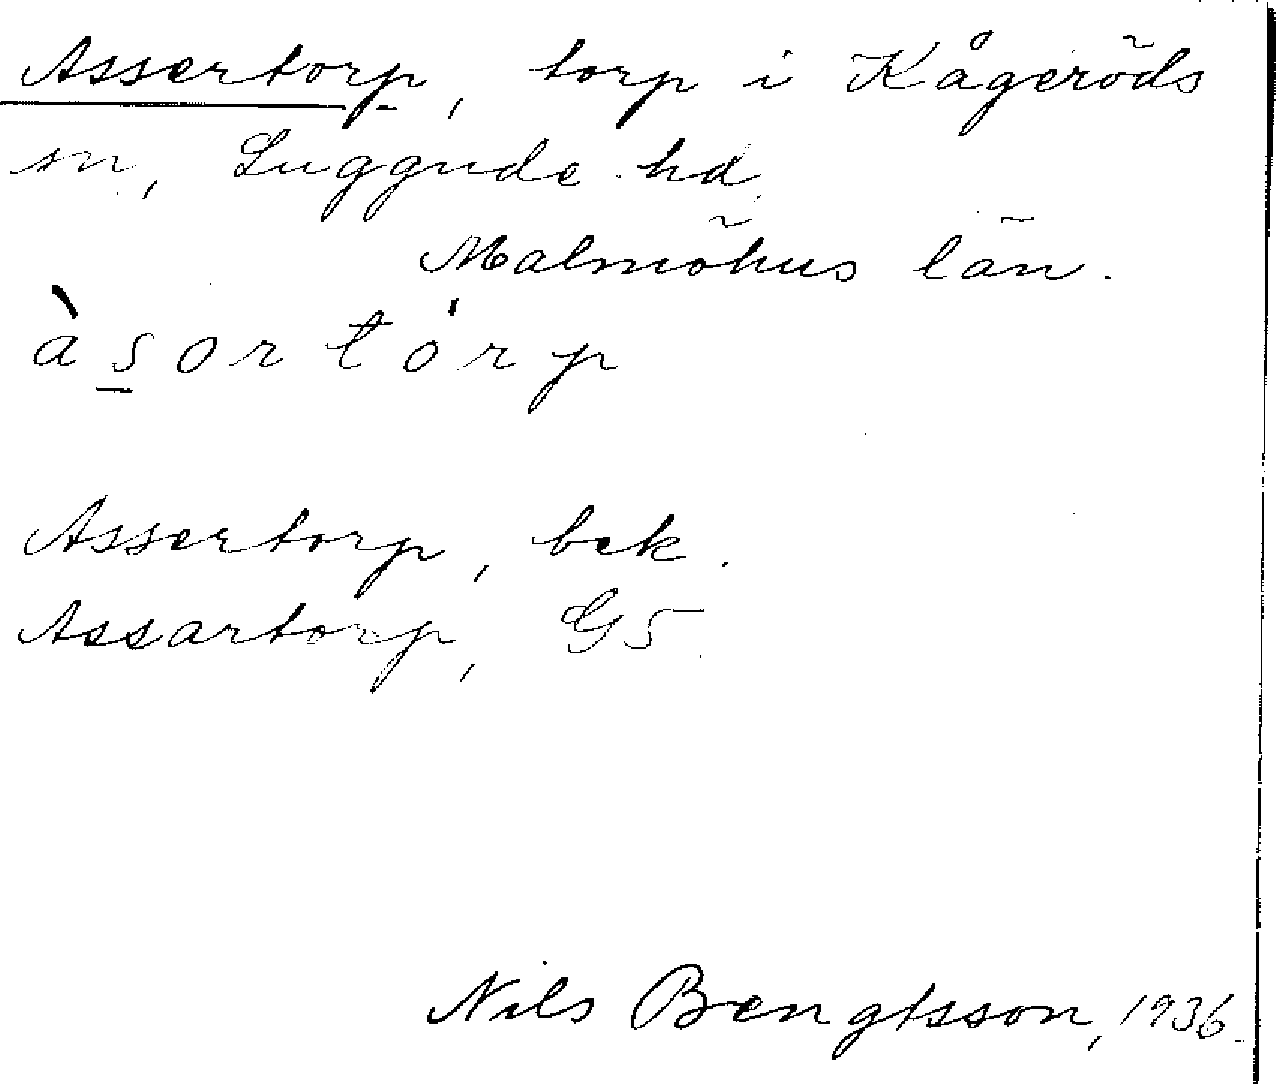 Assertorp, torp i Kågeröds
sn, Luggude hd.
Malmöhus län.
àsortórp
Assertorp, bek.
Assartorp, G5.
Nils Bengtsson, 1936.